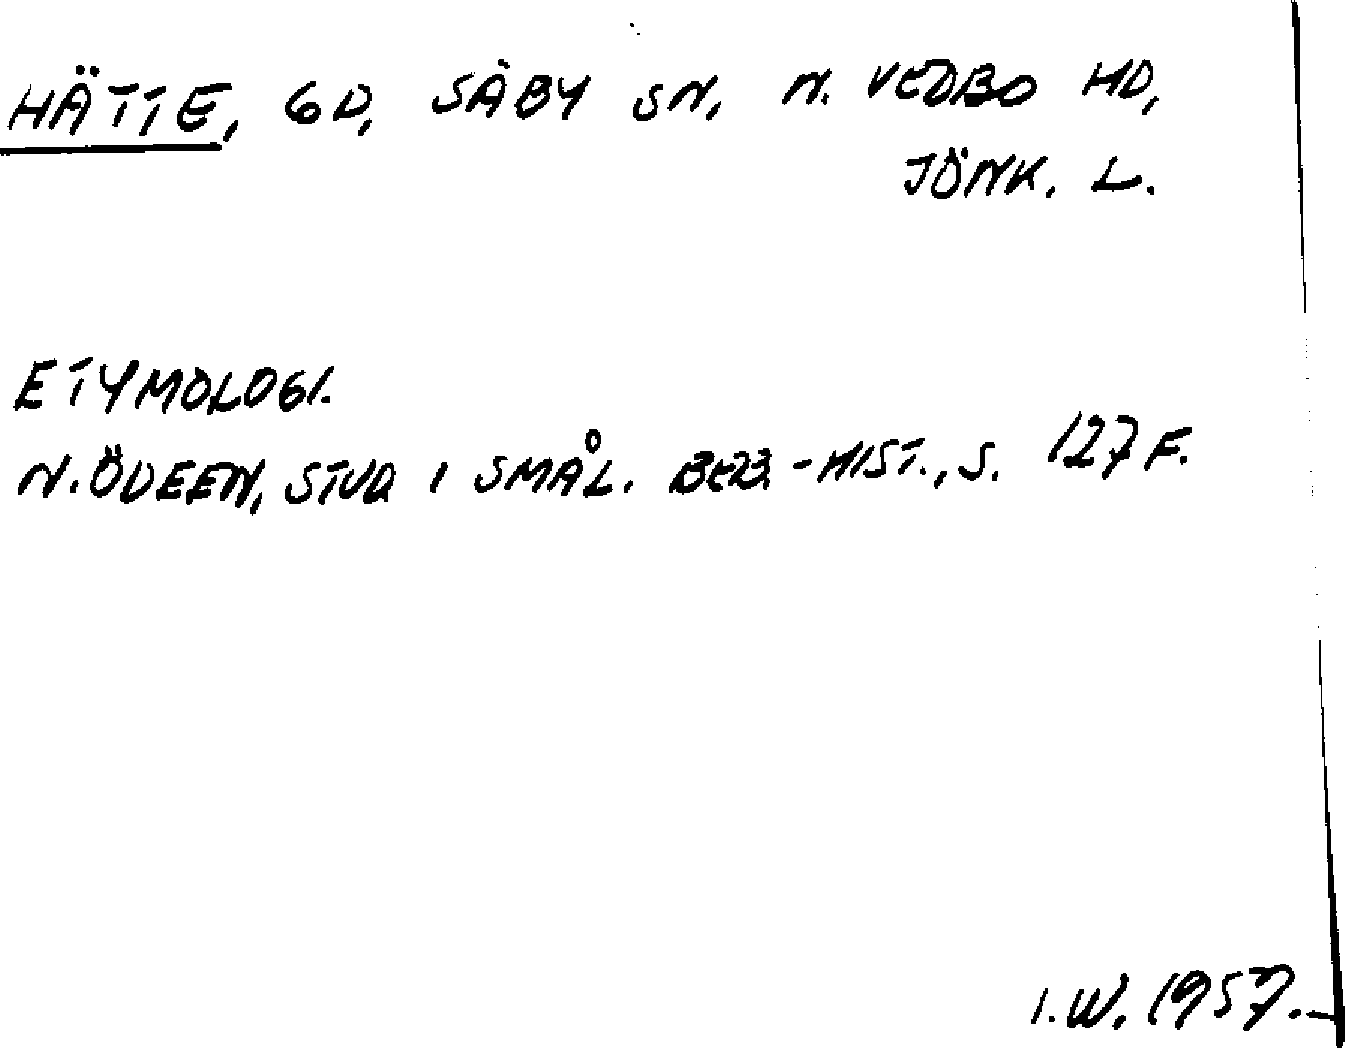 HÄTTE, GD, SÄBY SN, N. VEDBO HD,
JÖNK. L.
ETYMOLOGI.
N. ÖDEEN, STUD I SMÅL. BEB.-HIST., S. 127 F.
I. W. 1957.